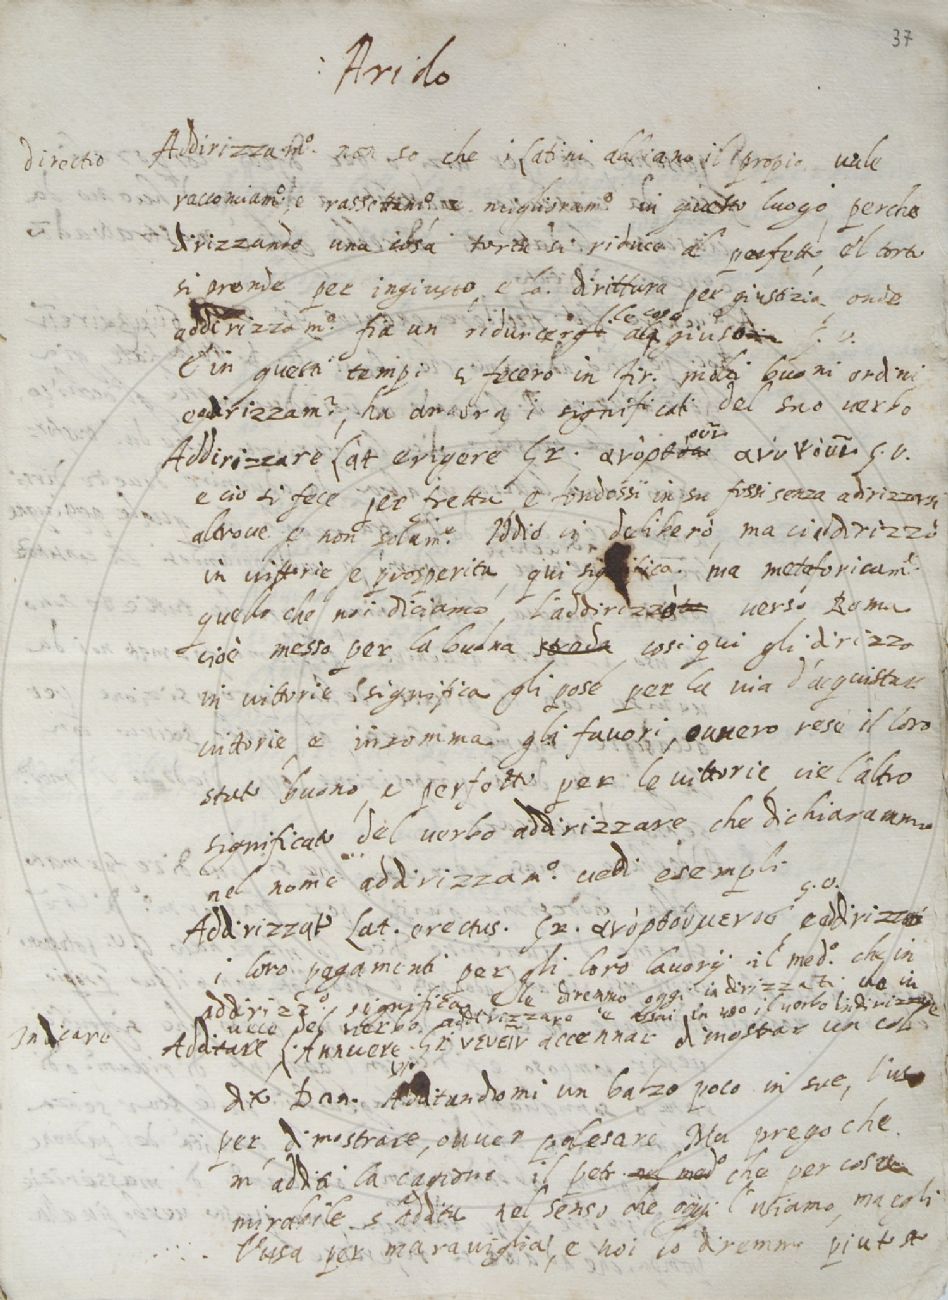 37
Arido
directio
Addirizzam.o non so che i Latini abbiano il propio vale
racconciam.o, e rassettam.o e miglioram.o in questo luogo, perche
dirizzando una cosa torta si riduce al perfetto, e'l torto
si prende per ingiusto, e la dirittura per giustizia, onde
addirizzam.o fia un ridurre le cose al giusto G. V.
E in questi tempi si fecero in Fir. molti buoni ordini
e addirizzam.ti, ha ancora i significati del suo verbo
Addirizzare Lat. erigere Gr. G. V.
e cio si fece per fretta e fondossi in su fossi senza adirizzarsi
altrove e non solam.e Iddio ci deliberò, ma ci addirizzò
in vittorie e prosperita, qui significa ma metaforicam.e
quello che noi diciamo, l'addirizzò verso Roma
cioè messo per la buona strada cosi qui gli dirizzo
in vittorie significa gli pose per la via d'acquistar
vittorie, e insomma gli favori, ovvero rese il loro
stato buono, e perfetto per le vittorie, vie l'altro
significato del verbo addirizzare che dichiarammo
nel nome addirizzam.o vedi esempli
Addirizzato Lat. erectus. Gr. G. V. e addirizzati
i loro pagamenti per gli loro lavorij il med.o che in
addirizam.o significa, e le diremo oggi indirizzati
vece del verbo addirizzare è assai in uso il verbo Indirizzare
Indicare
Additare L. Annuere Gr. νεύειν accennar dimostrar un col
dito Dan. Additandomi un balzo poco in sue, l'usò
per dimostrare, ovver palesare Ma prego che
m'additi la cagione il Petr. nel med.o che per cosa
mirabile s'addita nel senso che oggi l'usiamo, ma egli
l'usa per maraviglia, e noi lo diremmo piutosto